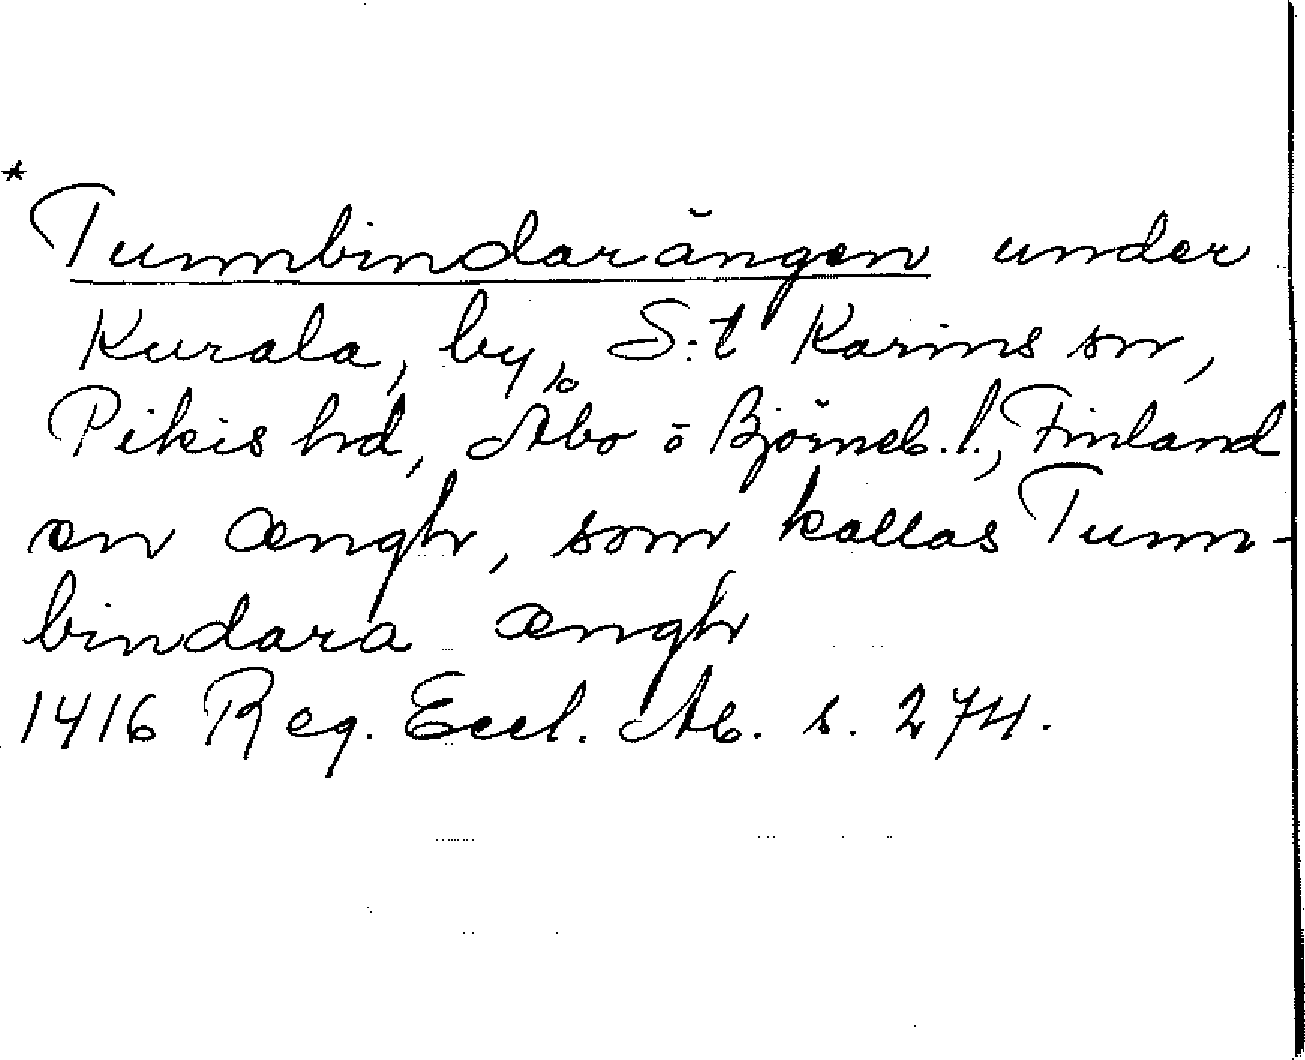 *
Tunnbindarängen under
Kurala, by, S:t Karins sn,
Pikis hd, Åbo o Björneb. l., Finland
en ængh, som kallas Tunn-
bindara ængh
1416 Reg. Eccl. Ab. s. 274.